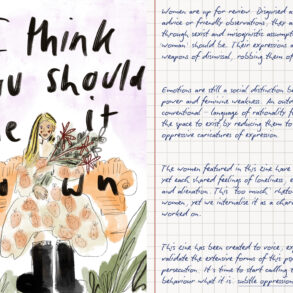 I think
you should
it
own
Women are up for review. Disguised a
advice or friendly observations, they a
through sexist and misogynistic assumpt
woman' should be. Their expressions a
weapons of dismissal, robbing them of
Emotions are still a social distinction be
power and feminine weakness. An out
conventional - language of rationality f
the space to exist by reducing them to
oppressive caricatures of expression.
The women featured in this zine have
yet each shared feelings of loneliness, e
and alienation. This 'too much' rheto
women, yet we internalise it as a char
worked on.
This zine has been created to voice, ex
validate the extensive forms of this po
persecution. it's time to start calling
behaviour what it is: subtle oppression